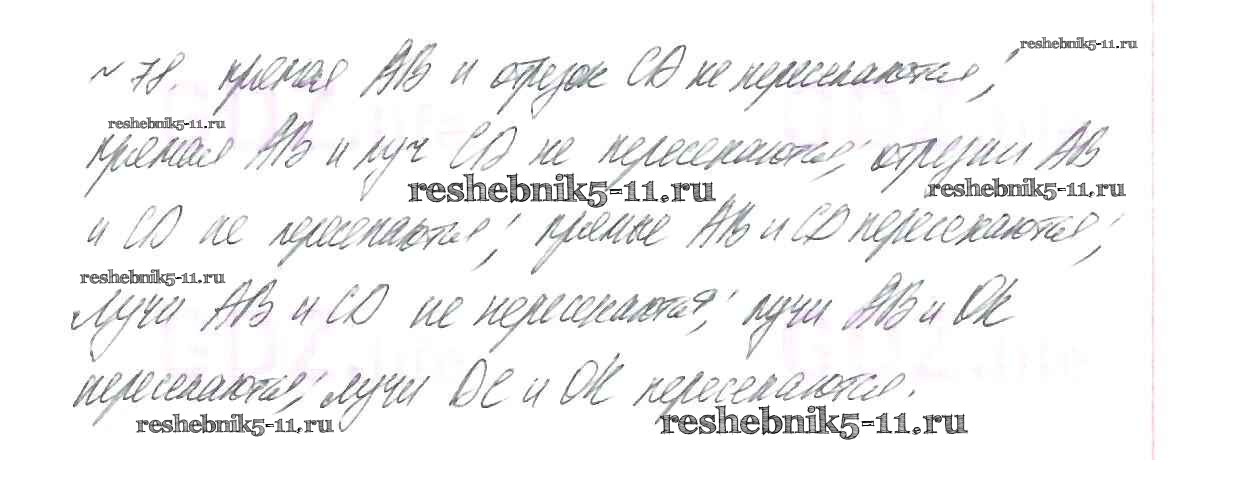 reshebnik5-11.ru
~ 78. прямая АВ и отрезок CD не пересекаются;
reshebnik5-11.ru
прямая АВ и луч CD не пересекаются; отрезки АВ
reshebnik5-11.ru reshebnik5-11.ru
и CD не пересекаются; прямые АВ и CD пересекаются;
reshebnik5-11.ru
лучи АВ и CD не пересекаются; лучи АВ и ОК
пересекаются; лучи DC и ОК пересекаются.
reshebnik5-11.ru reshebnik5-11.ru